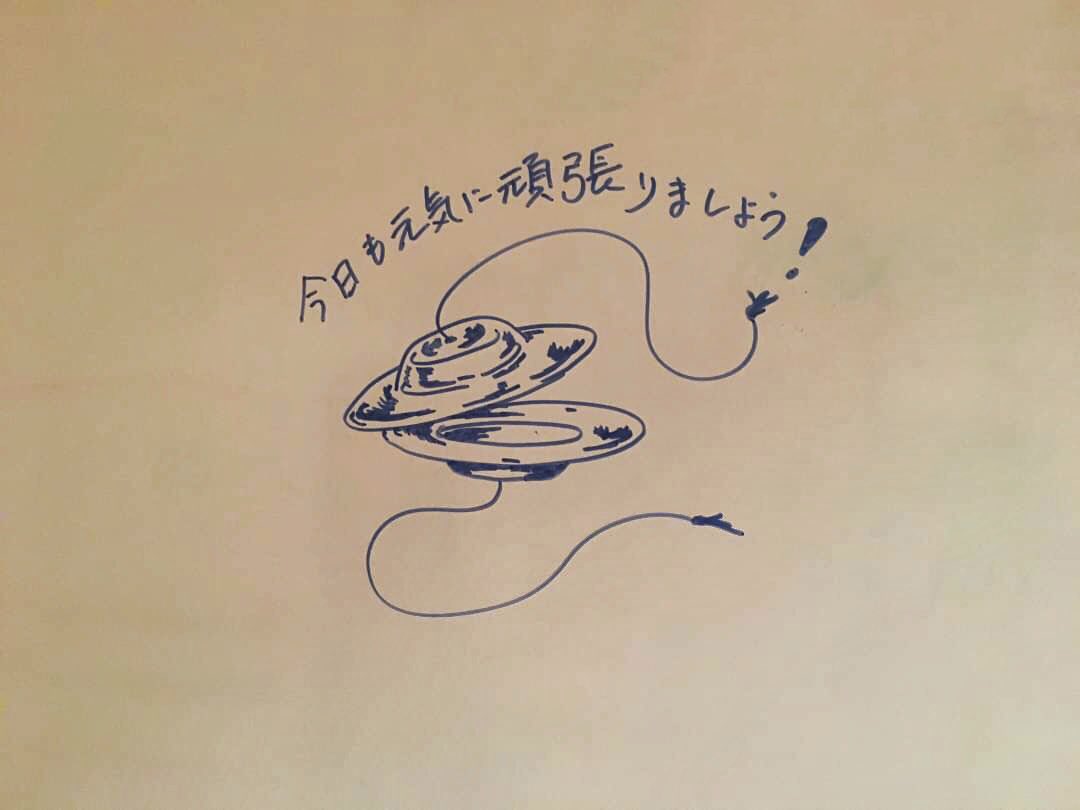 今日も元気に頑張りましょう!